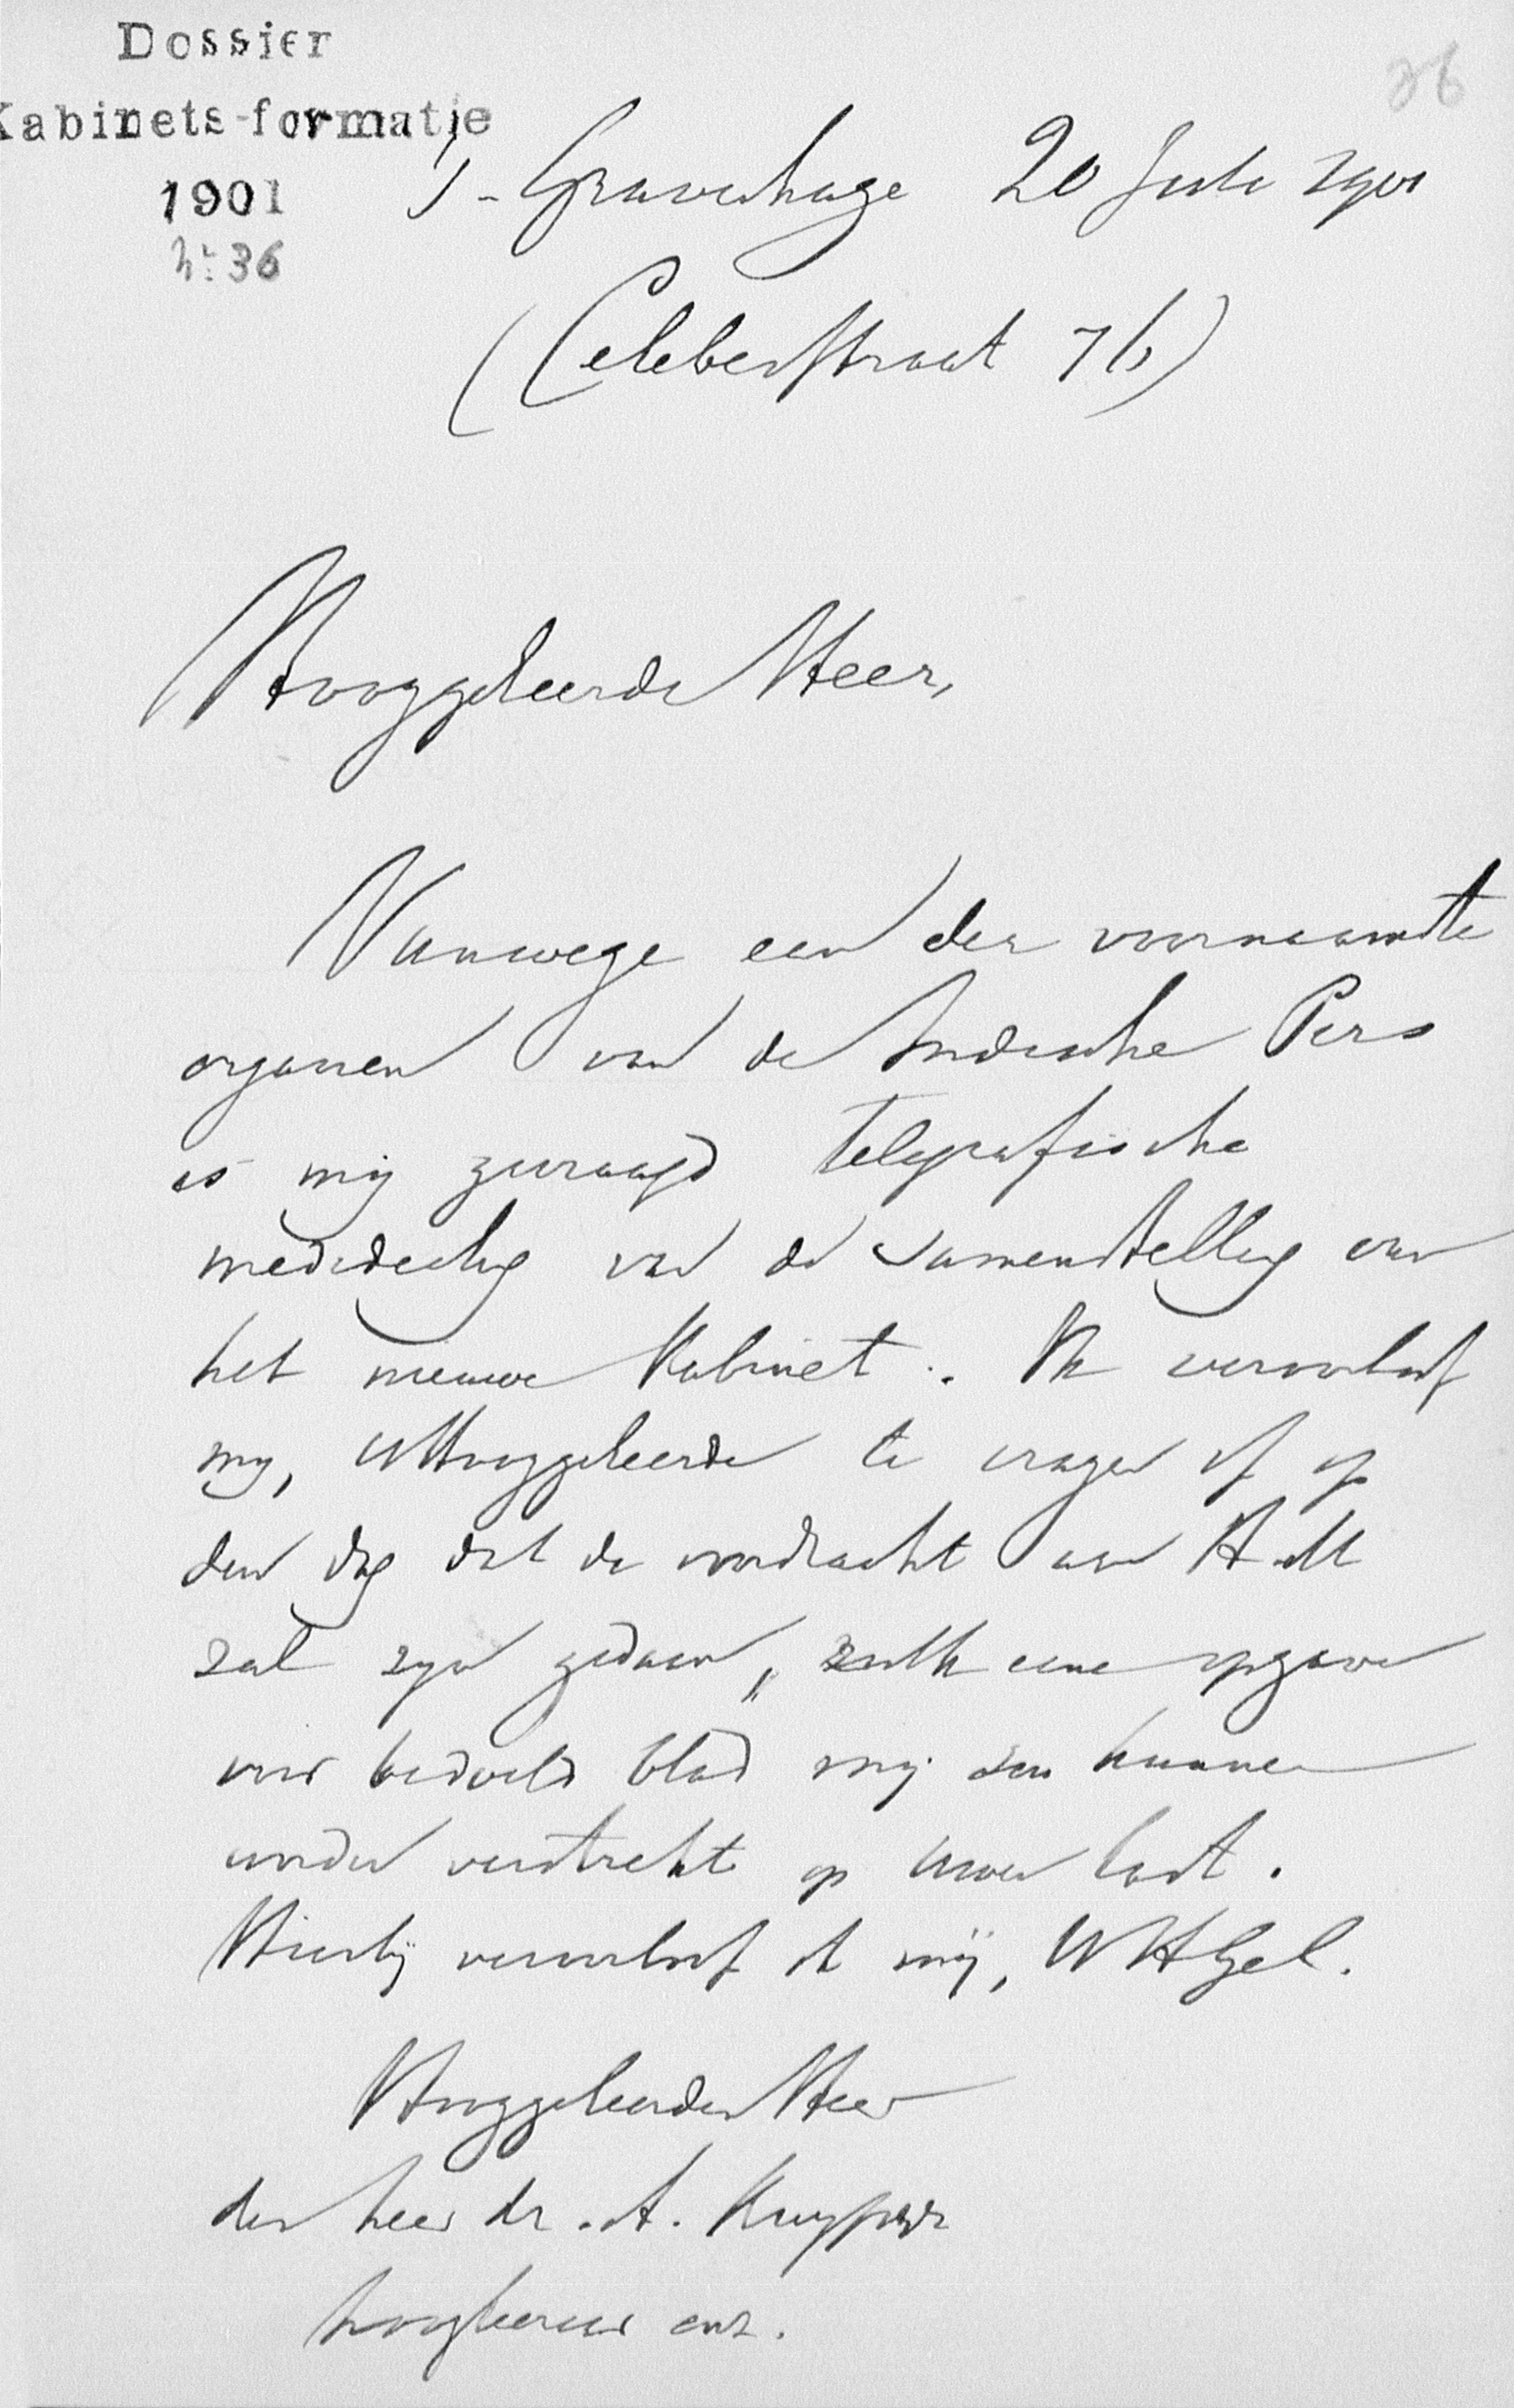 Dossier
Kabinets-formatie
1901
No 36
36
's-Gravenhage 20 Juli 1901
(Celebesstraat 76)
Hooggeleerde Heer,
Vanwege een der voornaamste
organen van de Indische Pers
is mij gevraagd telegrafische
mededeeling van de samenstelling van
het nieuwe Kabinet. Ik veroorloof
mij, UHooggeleerde te vragen of op
den dag dat de voordracht aan H.M
zal zijn gedaan, zulk eene opgave
voor bedoeld blad mij zou kunnen
worden verstrekt op Uwen last.
Hierbij veroorloof ik mij, UHGel.
Hooggeleerden Heer
den heer dr. A. Kuyper
hoogleeraar enz.